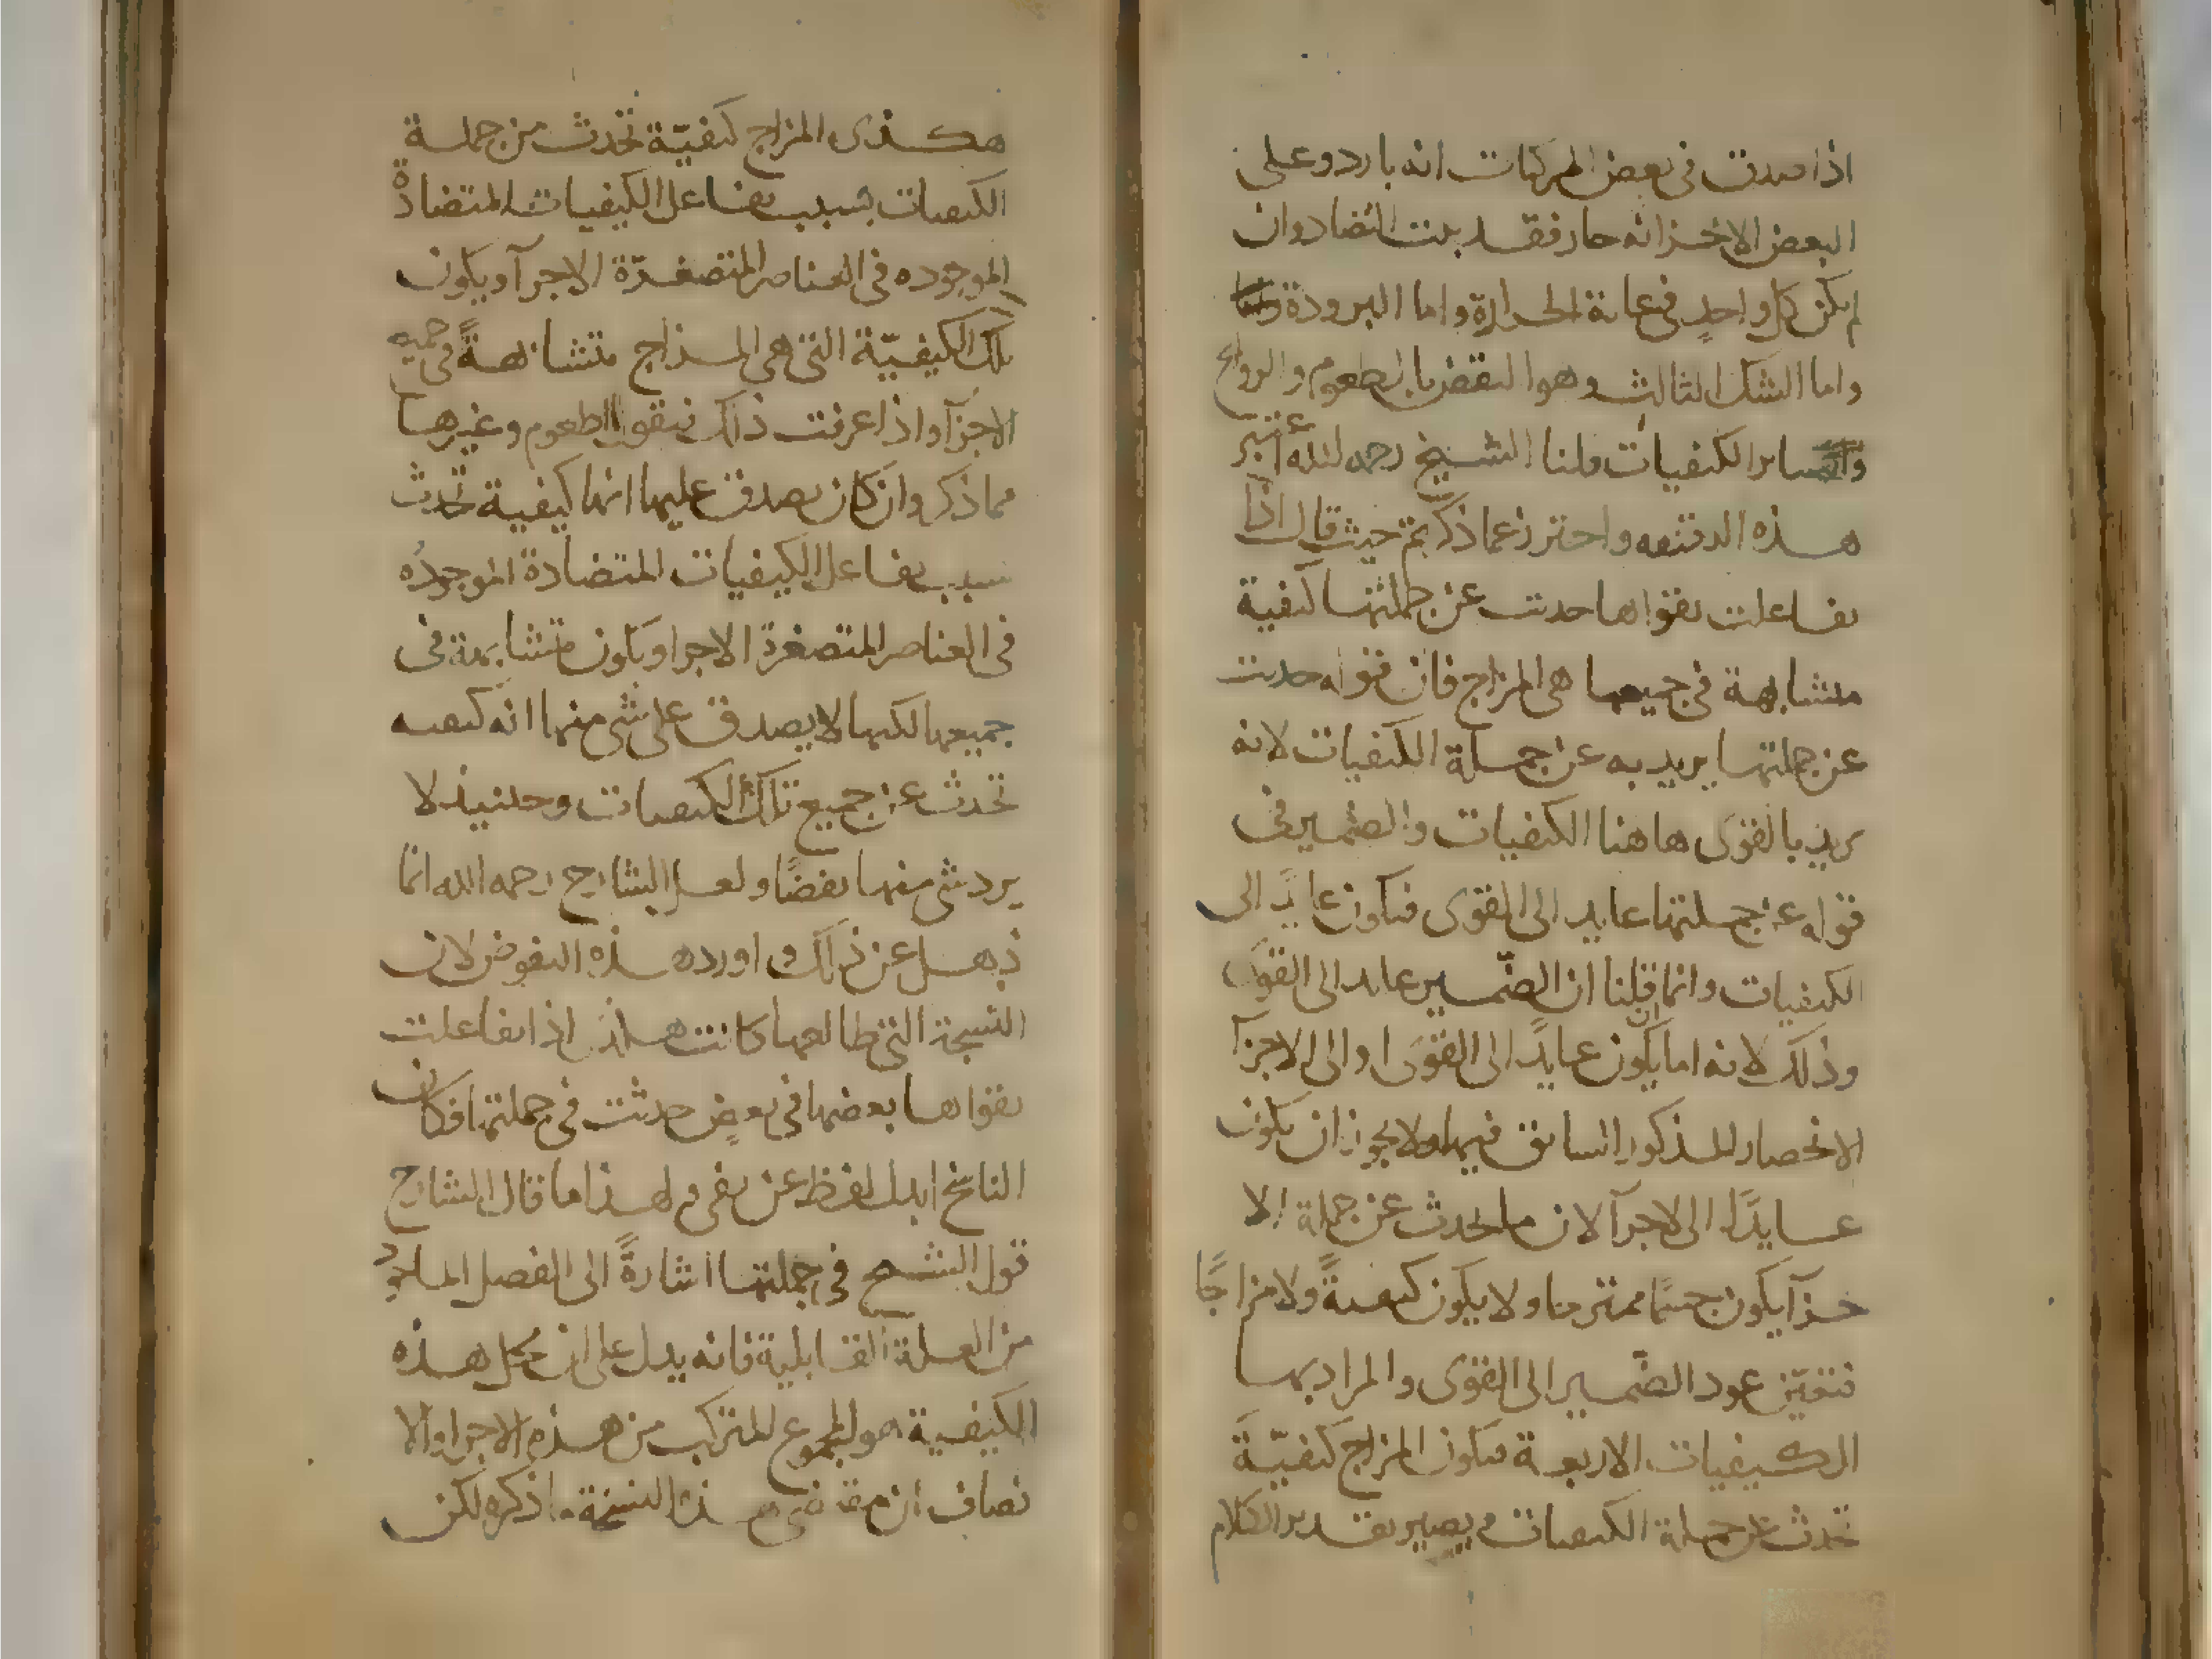 اذا صدق فى بعض المركبات انه بارد وعلى
البعض الاخر انه حار فقد بنت التضاد وان
لم يكن كل واحدٍ فى غاية الحرارة واما البرودة
واما الشك الثالث وهو النقض بالطعوم والروايح
وسائر الكيفيات قلنا الشيخ رحمه الله
هذه الدقيقه واحترز عما ذكرتم حيث قال اذا
تفاعلت بقواها حدثت عن جملتها كيفية
متشابهة فى جميعها هى المزاج فان قوله حدثت
عن جملتها يريد به عن جملة الكيفيات لانه
يريد بالقوى هاهنا الكيفيات والضمير فى
قوله عن جملتها عايد الى القوى فيكون عايدً الى
الكيفيات وانما قلنا ان الضمير عايد الى القوى
وذلك لانه اما ان يكون عايدً الى القوى او الى الاجزآ
الانحصار المذكور السابق فيهما ولا يجوز ان يكون
عايدًا الى الاجزآ لان ما يحدث عن جملة الا
جزآ يكون جسمًا ممتزجا ولا يكون كيفيةً ولا مزاجًا
فتعيّن عود الضمير الى القوى والمراد بها
الكيفيات الاربعة فيكون المزاج كيفيّةً
تحدث عن جملة الكيفيات ويصير تقدير الكلام
هكذى المزاج كيفيّة تحدث من جملة
الكيفيات بسبب تفاعل الكيفيات المتضادة
الموجوده فى العناصر المتصغرّة الاجزآ ويكون
تلك الكيفيّة التى هى المزاج متشابهةً فى جميع
الاجزآ واذا عرفت ذلك فنقول الطعوم وغيرها
مما ذكر وان كان يصدق عليها انها كيفية تحدث
بسبب تفاعل الكيفيات المتضادة الموجوده
فى العناصر المتصغرة الاجزا ويكون متشابهة فى
جميعها لكنها لا يصدق على شى منها انه كيفيه
تحدث عن جميع تلك الكيفيات وحينيذ لا
يرد شى منها نقضًا ولعل الشارح رحمه الله انما
ذهل عن ذلك واورد هذه النقوض لان
النسخة التى طالعها كانت هكذى اذا تفاعلت
بقواها بعضها فى بعضٍ حدثت فى جملتها فكان
الناسخ ابدل لفظ عن بفى ولهذا ما قال الشارح
قول الشيخ فى جملتها اشارةً الى الفصل الماخوذ
من العلة القابلية فانه يدل على ان محل هذه
الكيفية هو المجموع المتركب من هذه الاجزا والا
نصاف ان مقتضى هذه النسخة ما ذكره لكن